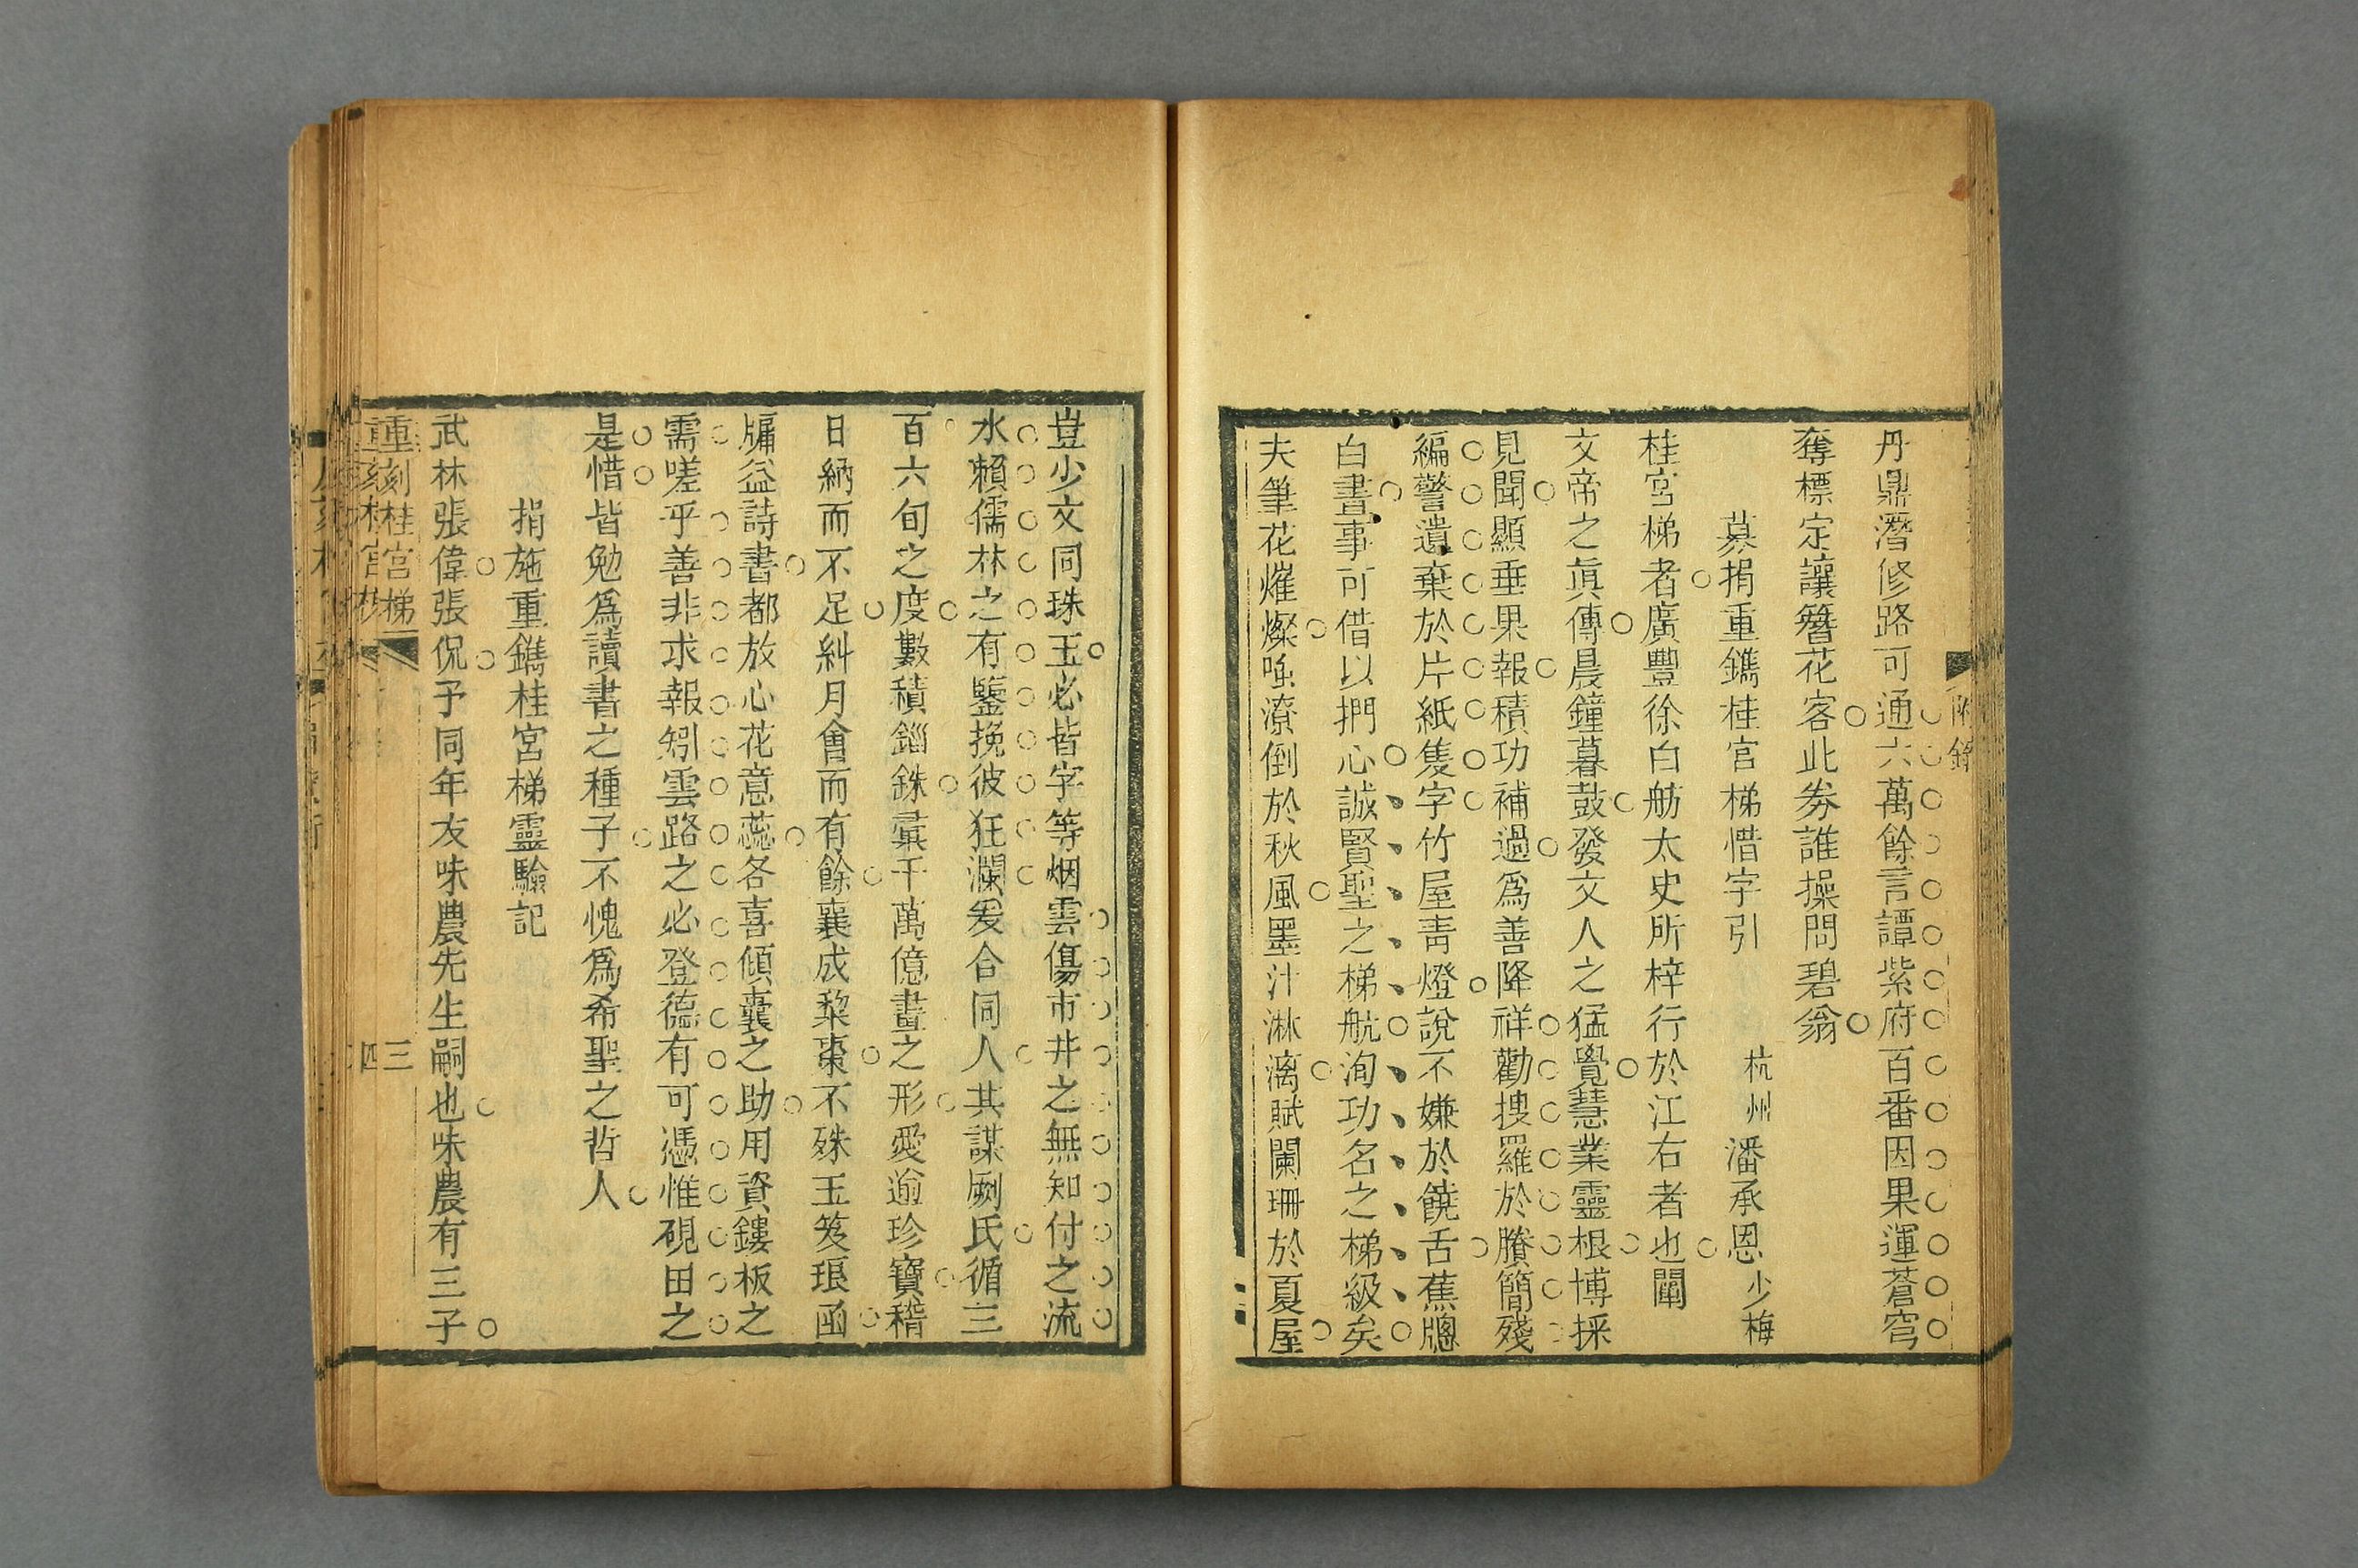 丹鼎潛修路可通六萬餘言譚紫府百番因果運蒼穹
奪標定讓簪花客此券誰操問碧翁
募捐重鐫桂宮梯惜字引
杭州潘承恩少梅
桂宮梯者廣豐徐白舫太史所梓行於江右者也闡
文帝之眞傳晨鐘暮鼓發文人之猛覺慧業靈根博採
見聞顯垂果報積功補過爲善降祥勸搜羅於賸簡殘
編警遺棄於片紙隻字竹屋靑燈說不嫌於饒舌蕉牕
白晝事可借以捫心誠賢聖之梯航洵功名之梯級矣
夫筆花燦潦倒於秋風墨汁淋漓賦闌珊於夏屋
豈少文同珠玉必皆字等烟雲傷市井之無知付之流
水賴儒林之有鑒挽彼狂瀾爰合同人其謀劂氏循三
百六旬之度數積錙銖彙千萬億畫之形愛逾珍寶稽
日納而不足糾月會而有餘襄成棃棗不殊玉笈琅函
牖益詩書都放心花意蕊各喜傾囊之助用資鏤板之
需嗟乎善非求報矧雲路之必登德有可憑惟硯田之
是惜皆勉爲讀書之種子不愧爲希聖之哲人
捐施重鐫桂宮梯靈驗記
武林張偉張侃予同年友味農先生嗣也味農有三子
重刻桂宮梯
三
四